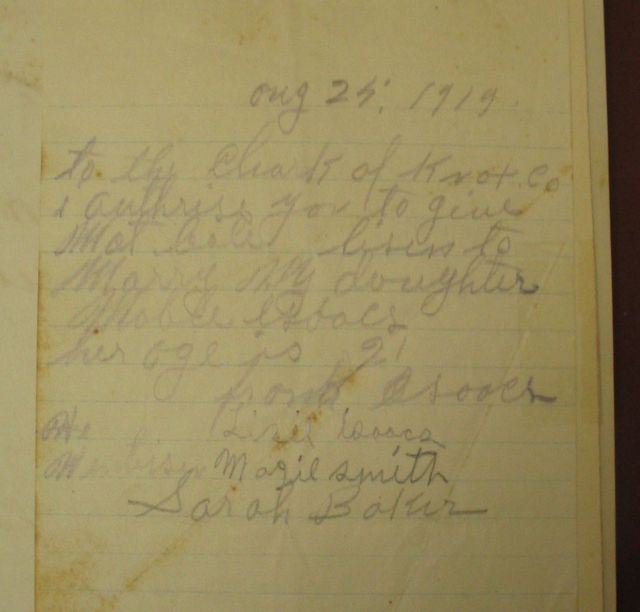 aug 25, 1919
to the Clark of Knox Co
i authriss you to give
Mat lisen to
Marry My daughter
Isaacs
her age is 21
frank Isaacs
Isaacs
Magie smith
Sarah Baker